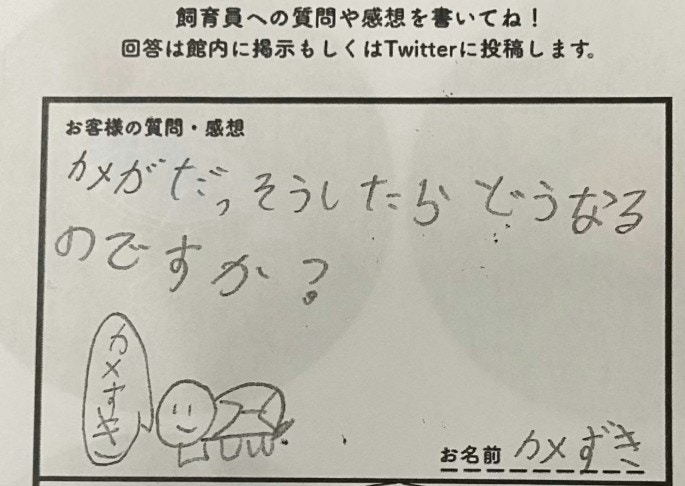 飼育員への質問や感想を書いてね！
回答は館内に掲示もしくはTwitterに投稿します。
お客様の質問・感想
カメがだっそうしたらどうなる
のですか？
カメすき
お名前 カメずき